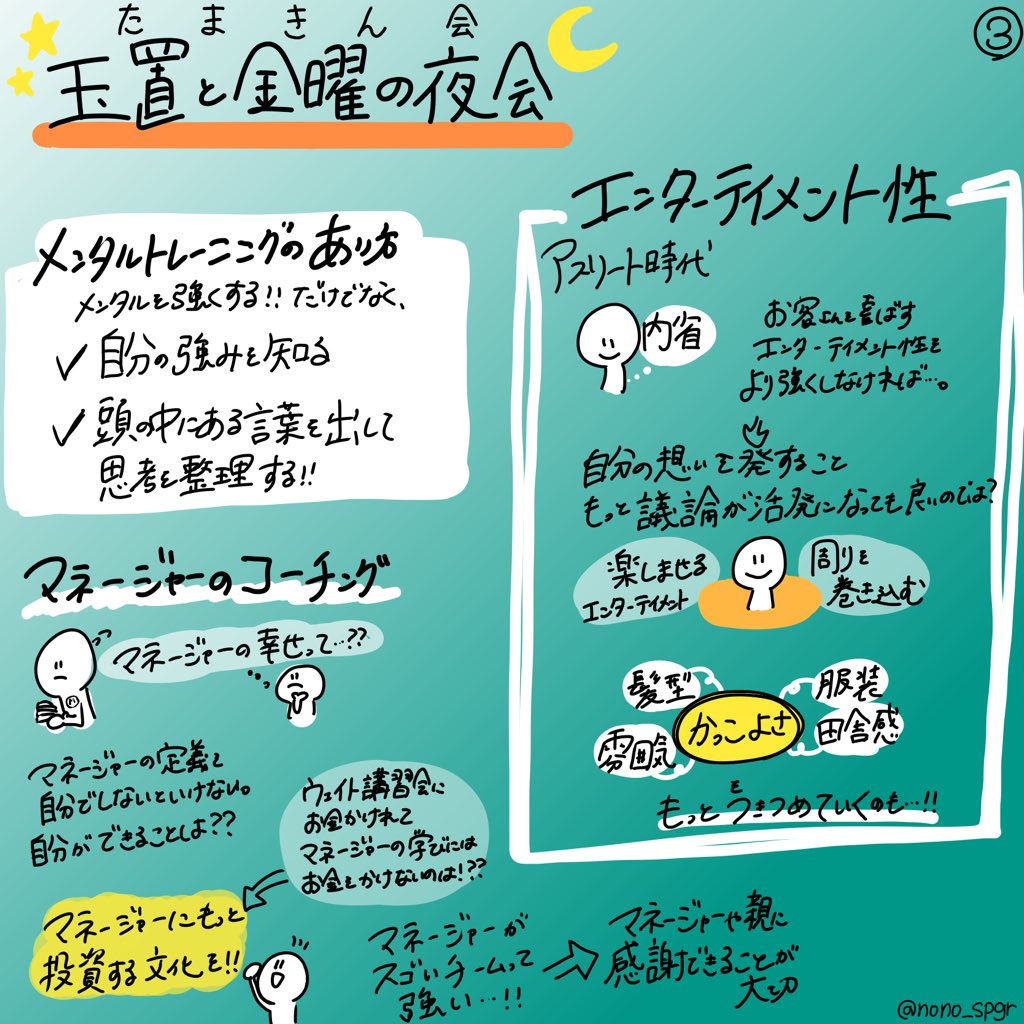 たまきん会
玉置と金曜の夜会
③
メンタルトレーニングのあり方
メンタルを強くする!! だけでなく、
✓ 自分の強みを知る
✓ 頭の中にある言葉を出して
思考を整理する!!
マネージャーのコーチング
マネージャーの幸せって…??
マネージャーの定義を
自分でしないといけない。
自分ができることは??
ウェイト講習会に
お金かけれて
マネージャーの学びには
お金をかけないのは!??
マネージャーにもっと
投資する文化を!!
マネージャーが
スゴいチームって
強い…!!
マネージャーや親に
感謝できることが
大切
エンターテイメント性
アスリート時代
内省
お客さんを喜ばす
エンターテイメント性を
より強くしなければ…。
自分の想いを発すること
もっと議論が活発になっても良いのでは?
楽しませる
エンターテイメント
周りを
巻き込む
髪型
服装
かっこよさ
雰囲気
田舎感
を
もっとつきつめていくのも…!!
@nono_spgr